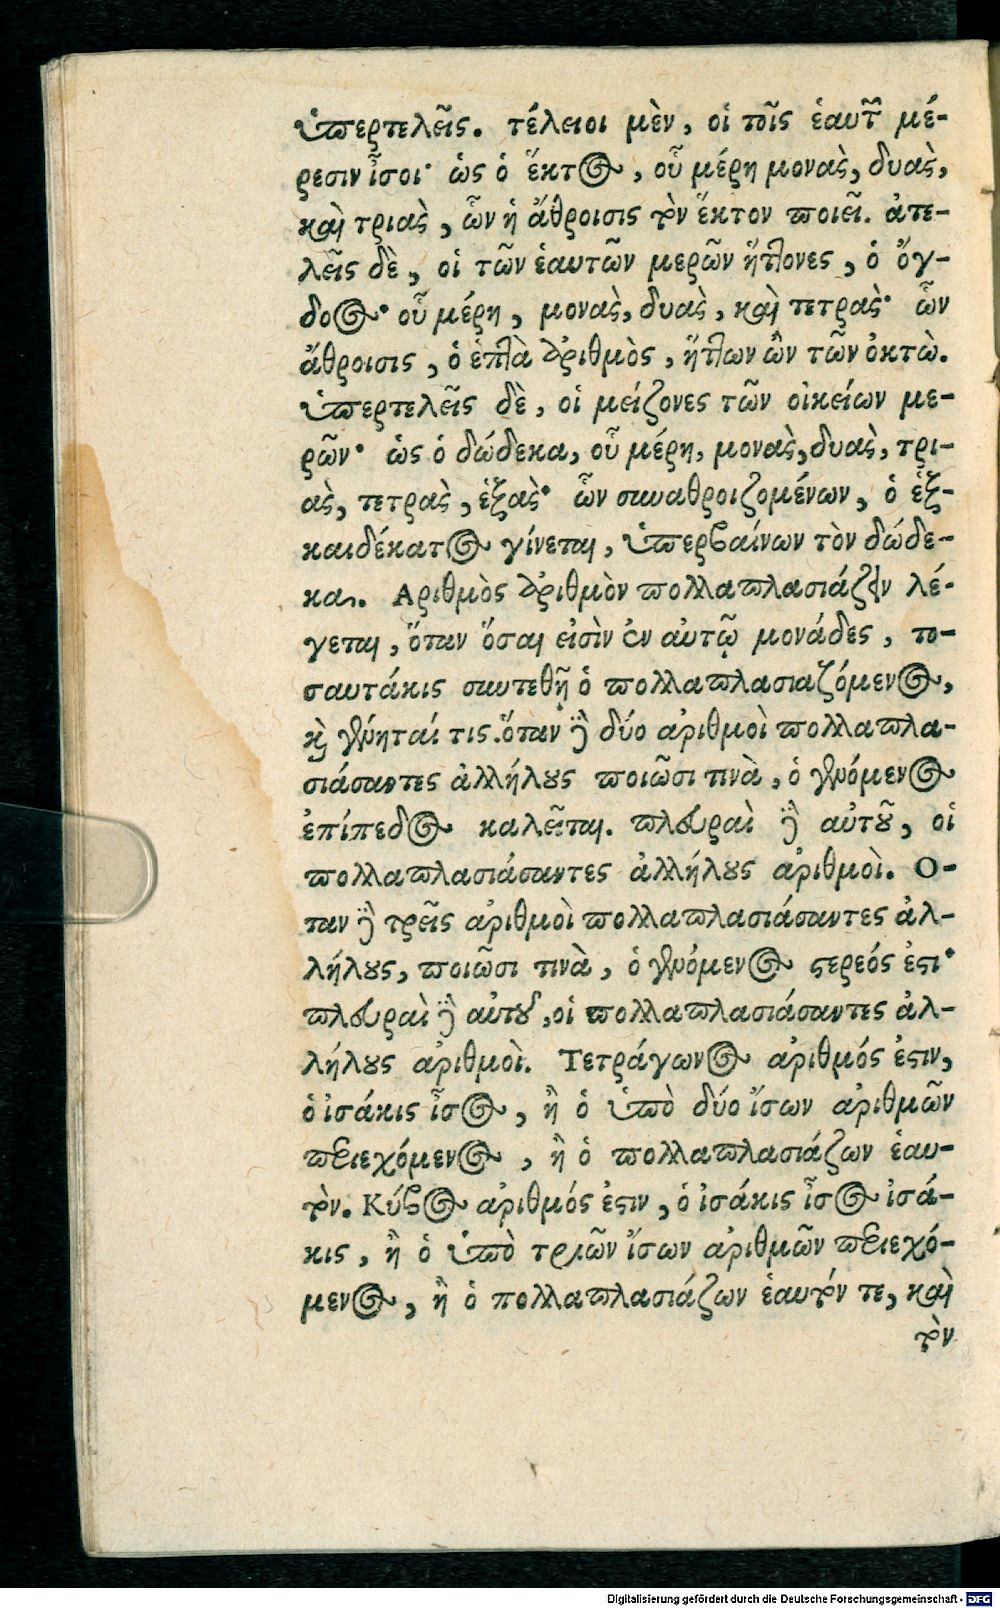 ὑπερτελεῖς. τέλειοι μὲν, οἱ τοῖς ἑαυτῶν μέ-
ρεσιν ἶσοι· ὡς ὁ ἕκτος, οὗ μέρη μονὰς, δυὰς,
καὶ τριὰς, ὧν ἡ ἄθροισις τὸν ἕκτον ποιεῖ. ἀτε-
λεῖς δὲ, οἱ τῶν ἑαυτῶν μερῶν ἥττονες, ὁ ὄγ-
δοος· οὗ μέρη, μονὰς, δυὰς, καὶ τετρὰς· ὧν
ἄθροισις, ὁ ἑπτὰ ἀριθμὸς, ἥττων ὢν τῶν ὀκτὼ.
ὑπερτελεῖς δὲ, οἱ μείζονες τῶν οἰκείων με-
ρῶν· ὡς ὁ δώδεκα, οὗ μέρη, μονὰς, δυὰς, τρι-
ὰς, τετρὰς, ἑξὰς· ὧν συναθροιζομένων, ὁ ἑξ-
καιδέκατος γίνεται, ὑπερβαίνων τὸν δώδε-
κα. Αριθμὸς ἀριθμὸν πολλαπλασιάζειν λέ-
γεται, ὅταν ὅσαι εἰσὶν ἐν αὐτῷ μονάδες, το-
σαυτάκις συντεθῇ ὁ πολλαπλασιαζόμενος,
καὶ γένηταί τις. ὅταν δὲ δύο ἀριθμοὶ πολλαπλα-
σιάσαντες ἀλλήλους ποιῶσι τινὰ, ὁ γενόμενος
ἐπίπεδος καλεῖται. πλευραὶ δὲ αὐτοῦ, οἱ
πολλαπλασιάσαντες ἀλλήλους ἀριθμοὶ. Ο-
ταν δὲ τρεῖς ἀριθμοὶ πολλαπλασιάσαντες ἀλ-
λήλους, ποιῶσι τινὰ, ὁ γενόμενος στερεός ἐστι·
πλευραὶ δὲ αὐτοῦ, οἱ πολλαπλασιάσαντες ἀλ-
λήλους ἀριθμοὶ. Τετράγωνος ἀριθμός ἐστιν,
ὁ ἰσάκις ἶσος, ἢ ὁ ὑπὸ δύο ἴσων ἀριθμῶν
περιεχόμενος, ἢ ὁ πολλαπλασιάζων ἑαυ-
τὸν. Κύβος ἀριθμός ἐστιν, ὁ ἰσάκις ἶσος ἰσά-
κις, ἢ ὁ ὑπὸ τριῶν ἴσων ἀριθμῶν περιεχό-
μενος, ἢ ὁ πολλαπλασιάζων ἑαυτόν τε, καὶ
τὸν
Digitalisierung gefördert durch die Deutsche Forschungsgemeinschaft - DFG